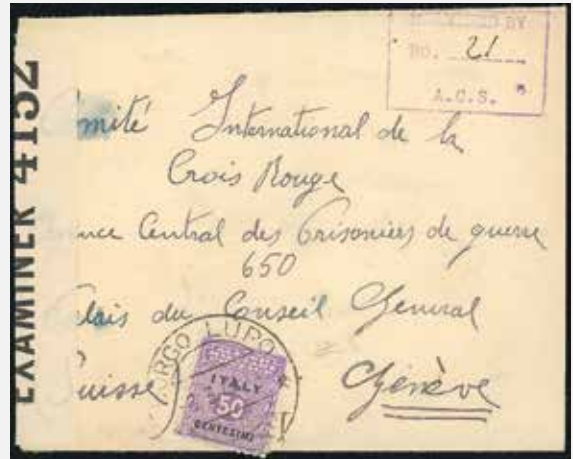 EXAMINER 4152
BY
NO. 21
A.C.S.
mité International de la
Crois Rouge
nce Central des Prisoniers de guerre
650
lais du Conseil General
uisse Génève
ARGO LUPO
ITALY
50
CENTESIMI